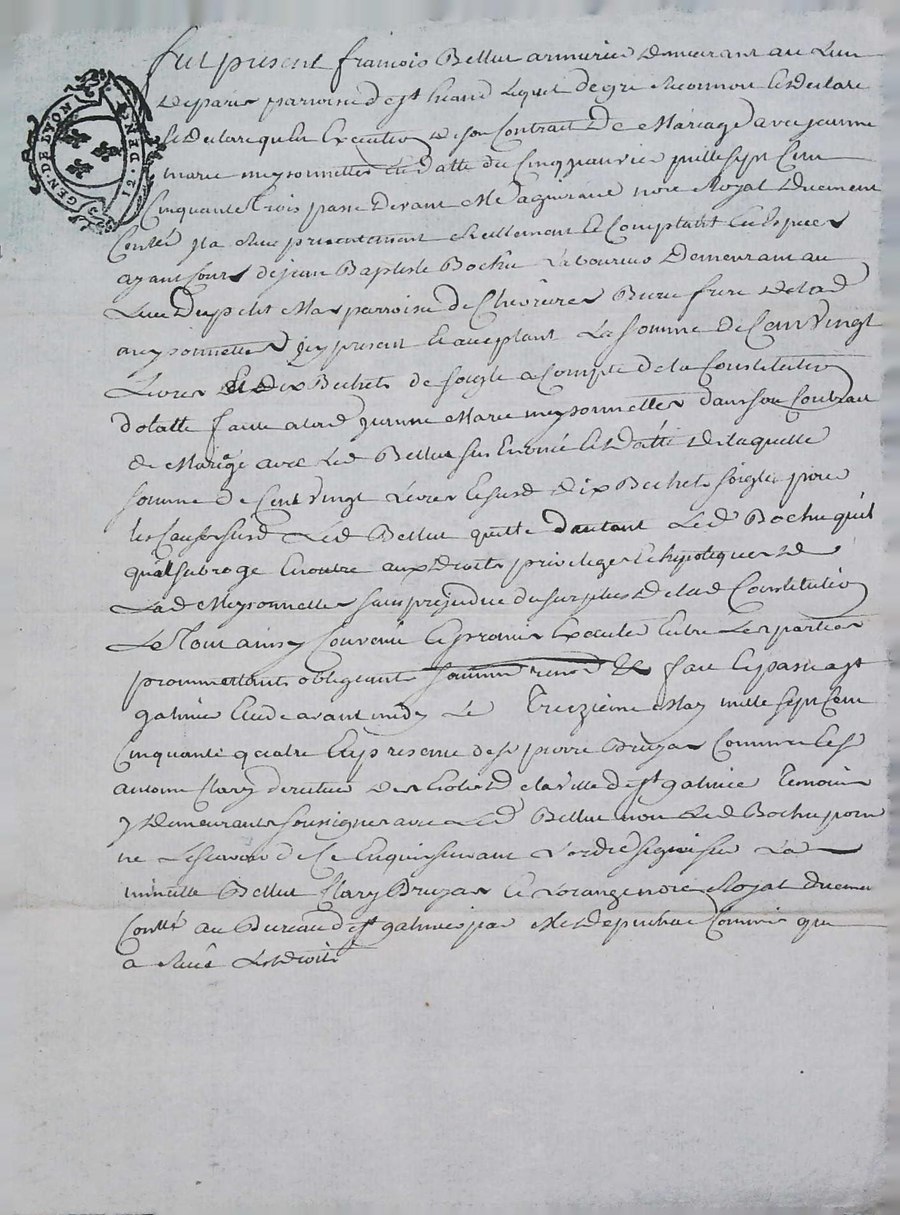 GEN. DE LYON
12. DEN.
fut present francois Bellut armurier Demeurant au Lieu
Deparis parroisse d'est heand Lequel de gre Reconnoit et Declare
Et Declare qu'en Execution De son Contrat De Mariage avec jeanne
marie meysonnettes En datte du Cinq janvier mille sept Cent
Cinquante trois passé Devant Me Dagniraud nore Royal Duement
Conllé Il a Receu presentement Reellement Et Comptant En Especes
ayant Cours de jean Baptiste Bochu Laboureur Demeurant au
Lieu Du petit Mas parroisse de Chevrieres Beau frere De lad
meysonnettes Icy present Et acceptant La Somme De Cent Vingt
Livres Et Dix Bichets de Soigle a Compte de la Constitution
dotalle faitte a lad jeanne Marie meysonnettes dans son Contrat
de Mariage avec Led Bellut sus Enoncé Et Datté De laquelle
somme De Cent Vingt Livres Et susd Dix Bichets soigle pour
les Causes susd Led Bellut quitte dautant Led Bochu qu'il
qu'il subroge En outre aux Droits privileges Et hipoteques De
Lad Meysonnettes sans prejudice du surplus De lad Constitution
Le Tout ainsy Convenu Et promis Executer Entre Les parties
promettant obligeant Soumm renon &c fait Et passé a st
galmier Etude avant midy Le Treizieme May mille sept Cent
Cinquante quatre En presence de sr pierre Bruyas Commis Et sr
antoine Clary directeur Des Ecoles De la Ville de st galmier Temoins
y Demeurants soussignes avec Led Bellut non Led Bochu pour
ne Le scavoir de Ce Enquis suivant L'ordre signé sur La
minutte Bellut Clary Bruyas Et Lorange nore Royal Duement
Conllé au Bureau de st galmier par Me Commis qui
a Receu Les Droits